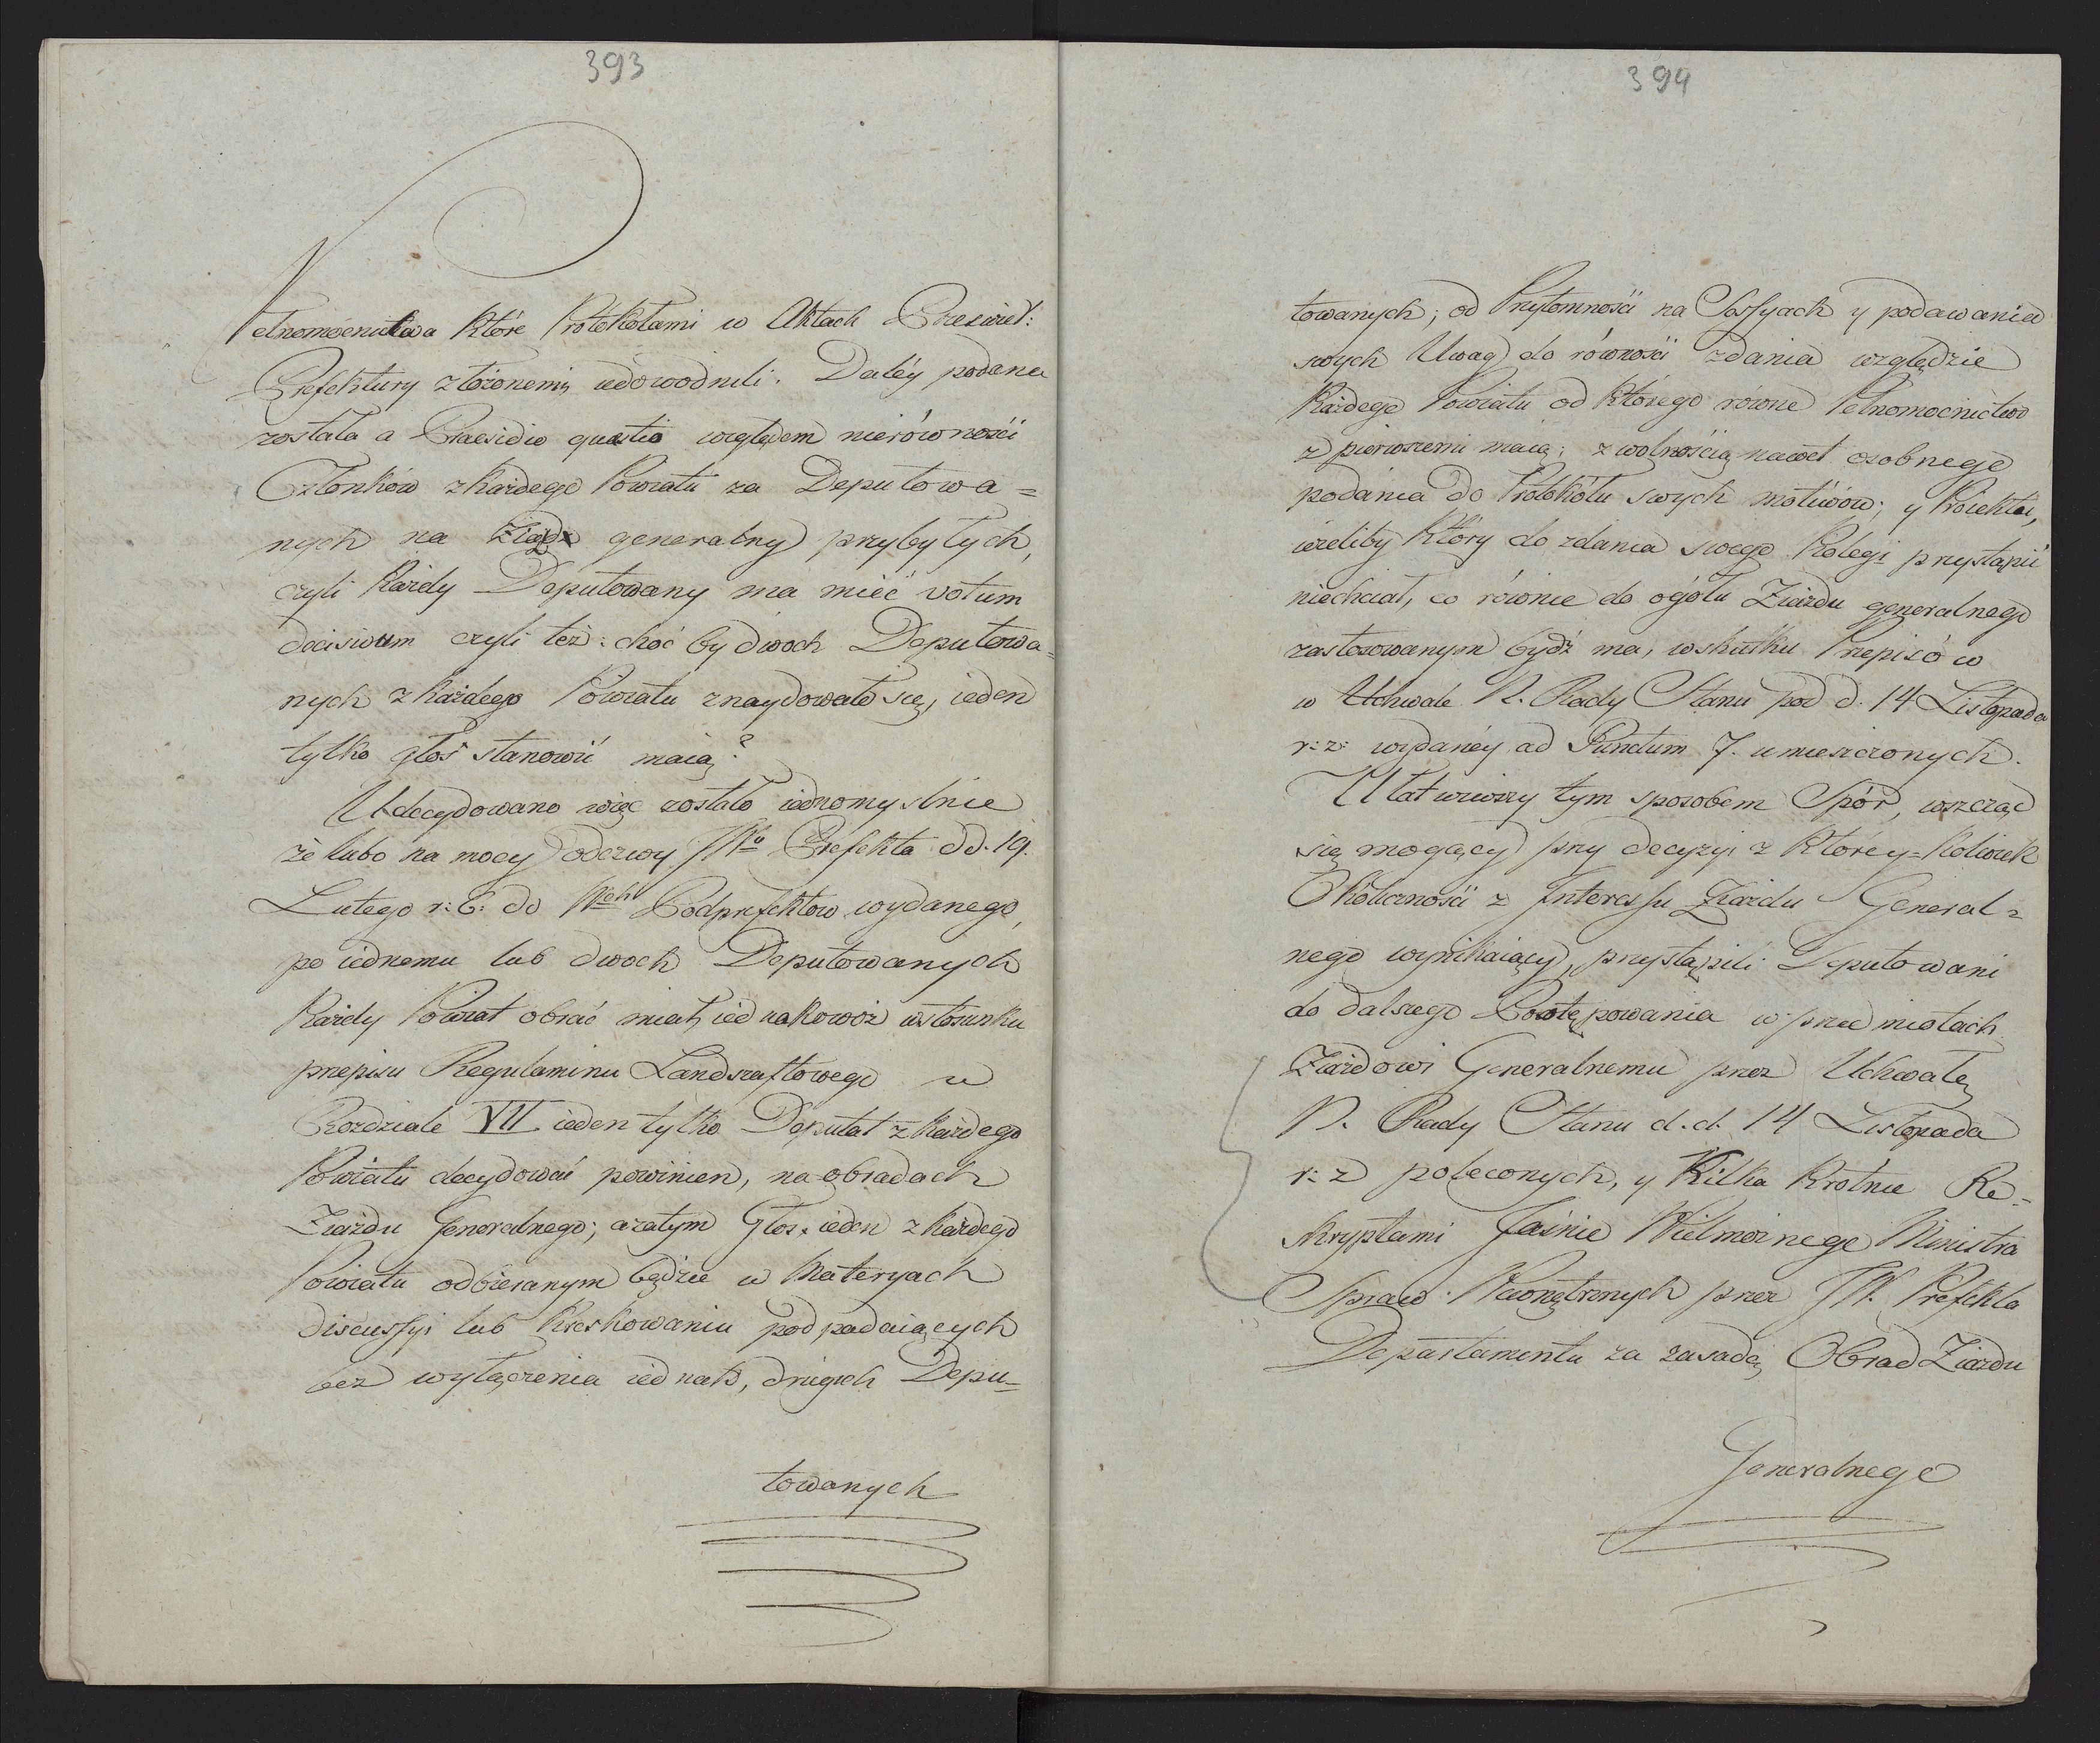 393
Pełnomocnictwa które Protokołami w Aktach Przeświet:
Prefektury złożonemi, udowodnili. Daléy podana
została a Praesidio questio względem nierówności
Członków z każdego Powiatu za Deputowa=
nych na Ziazd generalny przybyłych,
czyli każdy Deputowany ma mieć votum
decisivum czyli też: choć by dwoch Deputowa=
nych z każdego Powiatu znaydowało się, ieden
tylko głos stanowić maią?
Udecydowano więc zostało iednomyslnie
że lubo na mocy odezwy JWo Prefekta dd. 19.
Lutego r: b: do Wch Podprefektow wydanego,
po iednemu lub dwoch Deputowanych
każdy Powiat obrać miał, iednakowoż w stosunku
przepisu Regulaminu Landszaftowego w
Rozdziale VII ieden tylko Deputat z każdego
Powiatu decydować powinien, na obradach
Ziazdu Generalnego; a zatym Głos ieden z każdego
Powiatu odbieranym będzie w Materyach
discussyi lub kreskowaniu podpadaiących
bez wyłączenia iednak, drugich Depu=
towanych
394
towanych; od Przytomności na Sessyach y podawania
swych Uwag do równości zdania względzie
każdego Powiatu od którego równe Pełnomocnictwo
z pierwszemi maią; z wolnością nawet osobnego
podania do Protokółu swych motiwów; y Proiektu,
ieżeliby który do zdania swego Kolegi przystąpić
niechciał, co równie do ogółu Ziazdu generalnego
zastosowanym bydź ma, w skutku Przepisów
w Uchwale N. Rady Stanu pod d. 14 Listopada
r: z: wydanéy ad Punctum 7. umieszczonych.
Ułatwiwszy tym sposobem Spór, wszcząć
się mogący przy decyzyi z któréy=kolwiek
Okoliczności z Interessu Ziazdu General=
nego wynikaiący, przystąpili Deputowani
do dalszego Postępowania w przedmiotach
Ziazdowi Generalnemu przez Uchwałę
N. Rady Stanu d.d. 14 Listopada
r: z poleconych, y kilka krotnie Re=
skryptami Jaśnie Wielmożnego Ministra
Spraw Wewnętrznych przez JW. Prefekta
Departamentu za zasadę Obrad Ziazdu
Generalnego